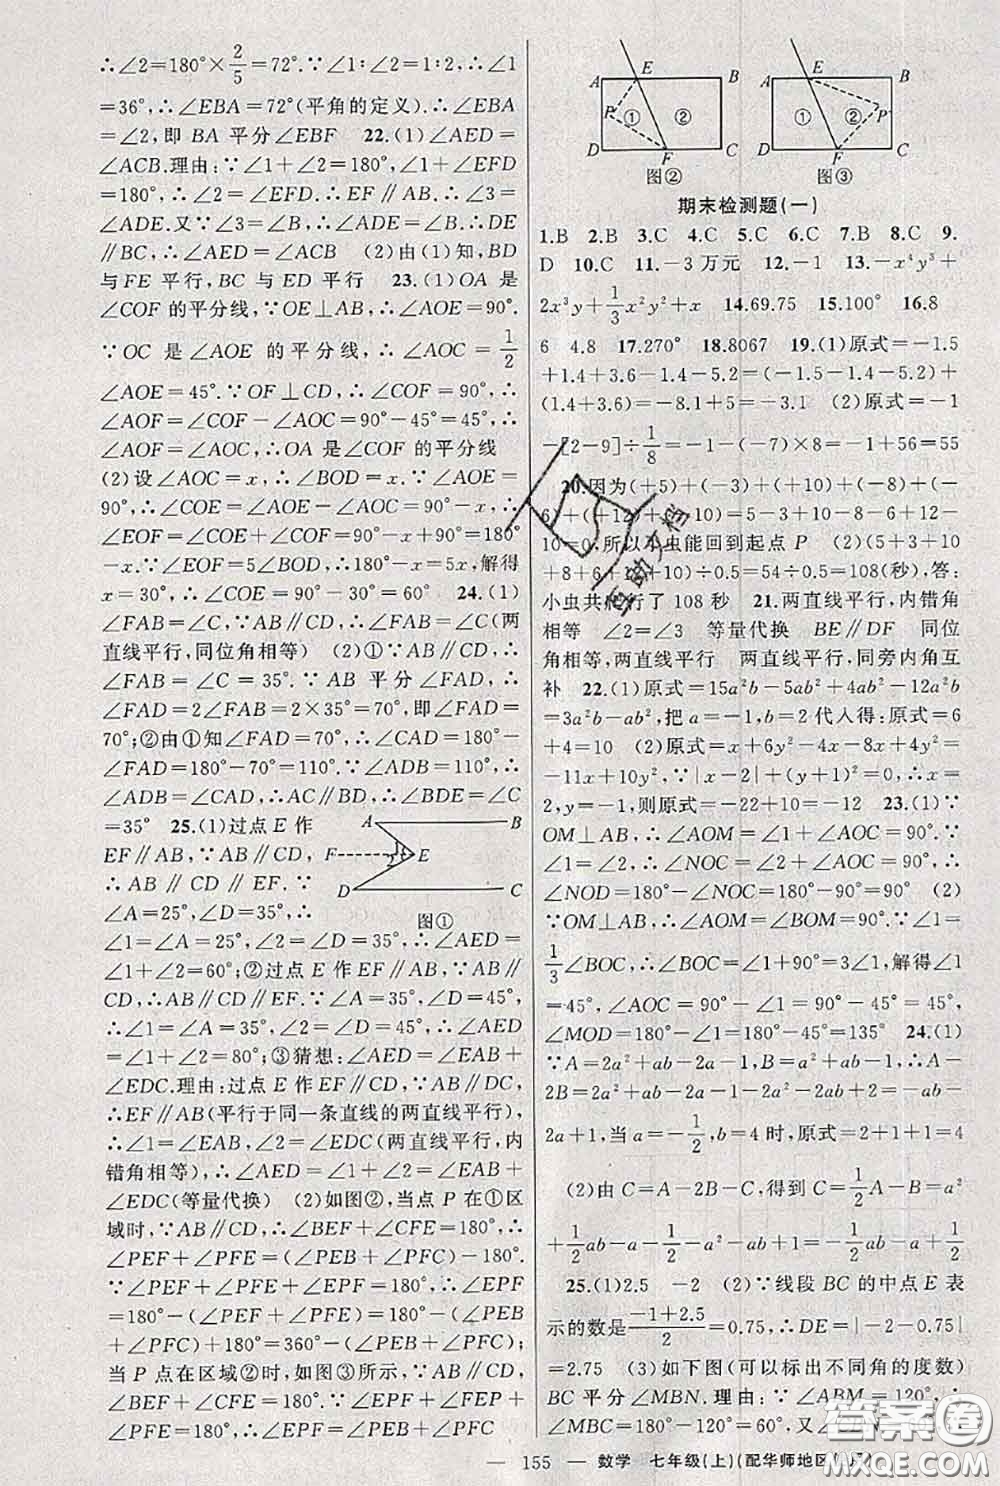 ∴∠2=180°×2/5=72°.∵∠1∶∠2=1∶2,∴∠1
=36°,∴∠EBA=72°(平角的定义).∴∠EBA
=∠2,即 BA 平分∠EBF 22.(1)∠AED=
∠ACB.理由:∵∠1+∠2=180°,∠1+∠EFD
=180°,∴∠2=∠EFD.∴EF∥AB.∴∠3=
∠ADE.又∵∠3=∠B,∴∠ADE=∠B.∴DE
∥BC,∴∠AED=∠ACB (2)由(1)知,BD
与FE 平行,BC 与 ED 平行 23.(1)OA 是
∠COF 的平分线,∵OE⊥AB,∴∠AOE=90°.
∵OC 是∠AOE 的平分线,∴∠AOC=1/2
∠AOE=45°.∵OF⊥CD,∴∠COF=90°,∴
∠AOF=∠COF-∠AOC=90°-45°=45°,∴
∠AOF=∠AOC,∴OA 是∠COF 的平分线
(2)设∠AOC=x,∴∠BOD=x.∵∠AOE=
90°,∴∠COE=∠AOE-∠AOC=90°-x,∴
∠EOF=∠COE+∠COF=90°-x+90°=180°
-x.∵∠EOF=5∠BOD,∴180°-x=5x,解得
x=30°,∴∠COE=90°-30°=60° 24.(1)
∠FAB=∠C,∵AB∥CD,∴∠FAB=∠C(两
直线平行,同位角相等) (2)①∵AB∥CD,∴
∠FAB=∠C=35°.∵AB 平分∠FAD,∴
∠FAD=2∠FAB=2×35°=70°,即∠FAD=
70°;②由①知∠FAD=70°,∴∠CAD=180°-
∠FAD=180°-70°=110°,∴∠ADB=110°,∴
∠ADB=∠CAD,∴AC∥BD,∴∠BDE=∠C
=35° 25.(1)过点E 作
EF∥AB,∵AB∥CD,
∴AB∥CD∥EF.∵
∠A=25°,∠D=35°,∴
A B
F E
D C
图①
∠1=∠A=25°,∠2=∠D=35°,∴∠AED=
∠1+∠2=60°;②过点E 作EF∥AB,∵AB∥
CD,∴AB∥CD∥EF.∵∠A=35°,∠D=45°,
∴∠1=∠A=35°,∠2=∠D=45°,∴∠AED
=∠1+∠2=80°;③猜想:∠AED=∠EAB+
∠EDC.理由:过点E 作EF∥CD,∵AB∥DC,
∴EF∥AB(平行于同一条直线的两直线平行),
∴∠1=∠EAB,∠2=∠EDC(两直线平行,内
错角相等),∴∠AED=∠1+∠2=∠EAB+
∠EDC(等量代换) (2)如图②,当点P 在①区
域时,∵AB∥CD,∴∠BEF+∠CFE=180°,∴
∠PEF+∠PFE=(∠PEB+∠PFC)-180°.
∵∠PEF+∠PFE+∠EPF=180°,∴∠EPF
=180°-(∠PEF+∠PFE)=180°-(∠PEB
+∠PFC)+180°=360°-(∠PEB+∠PFC);
当P 点在区域②时,如图③所示,∵AB∥CD,∴
∠BEF+∠CFE=180°.∵∠EPF+∠FEP+
∠PFE=180°,∴∠EPF=∠PEB+∠PFC
A E B
P ① ②
D F C
图②
A E B
① ② P
D F C
图③
期末检测题(一)
1.B 2.B 3.C 4.C 5.C 6.C 7.B 8.C 9.
D 10.C 11.-3万元 12.-1 13.-x⁴y³+
2x³y+1/3x²y²+x 14.69.75 15.100° 16.8
6 4.8 17.270° 18.8067 19.(1)原式=-1.5
+1.4+3.6-1.4-5.2=(-1.5-1.4-5.2)+
(1.4+3.6)=-8.1+5=-3.1 (2)原式=-1
-[2-9]÷1/8=-1-(-7)×8=-1+56=55
20.因为(+5)+(-3)+(+10)+(-8)+(-
6)+(+12)+(-10)=5-3+10-8-6+12-
10=0,所以小虫能回到起点P (2)(5+3+10
+8+6+12+10)÷0.5=54÷0.5=108(秒),答:
小虫共爬行了 108 秒 21.两直线平行,内错角
相等 ∠2=∠3 等量代换 BE∥DF 同位
角相等,两直线平行 两直线平行,同旁内角互
补 22.(1)原式=15a²b-5ab²+4ab²-12a²b
=3a²b-ab²,把a=-1,b=2代入得:原式=6
+4=10 (2)原式=x+6y²-4x-8x+4y²=
-11x+10y²,∵|x-2|+(y+1)²=0,∴x=
2,y=-1,则原式=-22+10=-12 23.(1)∵
OM⊥AB,∴∠AOM=∠1+∠AOC=90°.∵
∠1=∠2,∴∠NOC=∠2+∠AOC=90°,∴
∠NOD=180°-∠NOC=180°-90°=90° (2)
∵OM⊥AB,∴∠AOM=∠BOM=90°.∵∠1=
1/3∠BOC,∴∠BOC=∠1+90°=3∠1,解得∠1
=45°,∠AOC=90°-∠1=90°-45°=45°,
∠MOD=180°-∠1=180°-45°=135° 24.(1)
∵A=2a²+ab-2a-1,B=a²+ab-1,∴A-
2B=2a²+ab-2a-1-2a²-2ab+2=-ab-
2a+1,当a=-1/2,b=4时,原式=2+1+1=4
(2)由C=A-2B-C,得到C=1/2A-B=a²
+1/2ab-a-1/2-a²-ab+1=-1/2ab-a+1/2
25.(1)2.5 -2 (2)∵线段 BC 的中点E 表
示的数是(-1+2.5)/2=0.75,∴DE=|-2-0.75|
=2.75 (3)如下图(可以标出不同角的度数)
BC 平分∠MBN.理由:∵∠ABM=120°,∴
∠MBC=180°-120°=60°.又∵
— 155 — 数学 七年级(上)(配华师地区